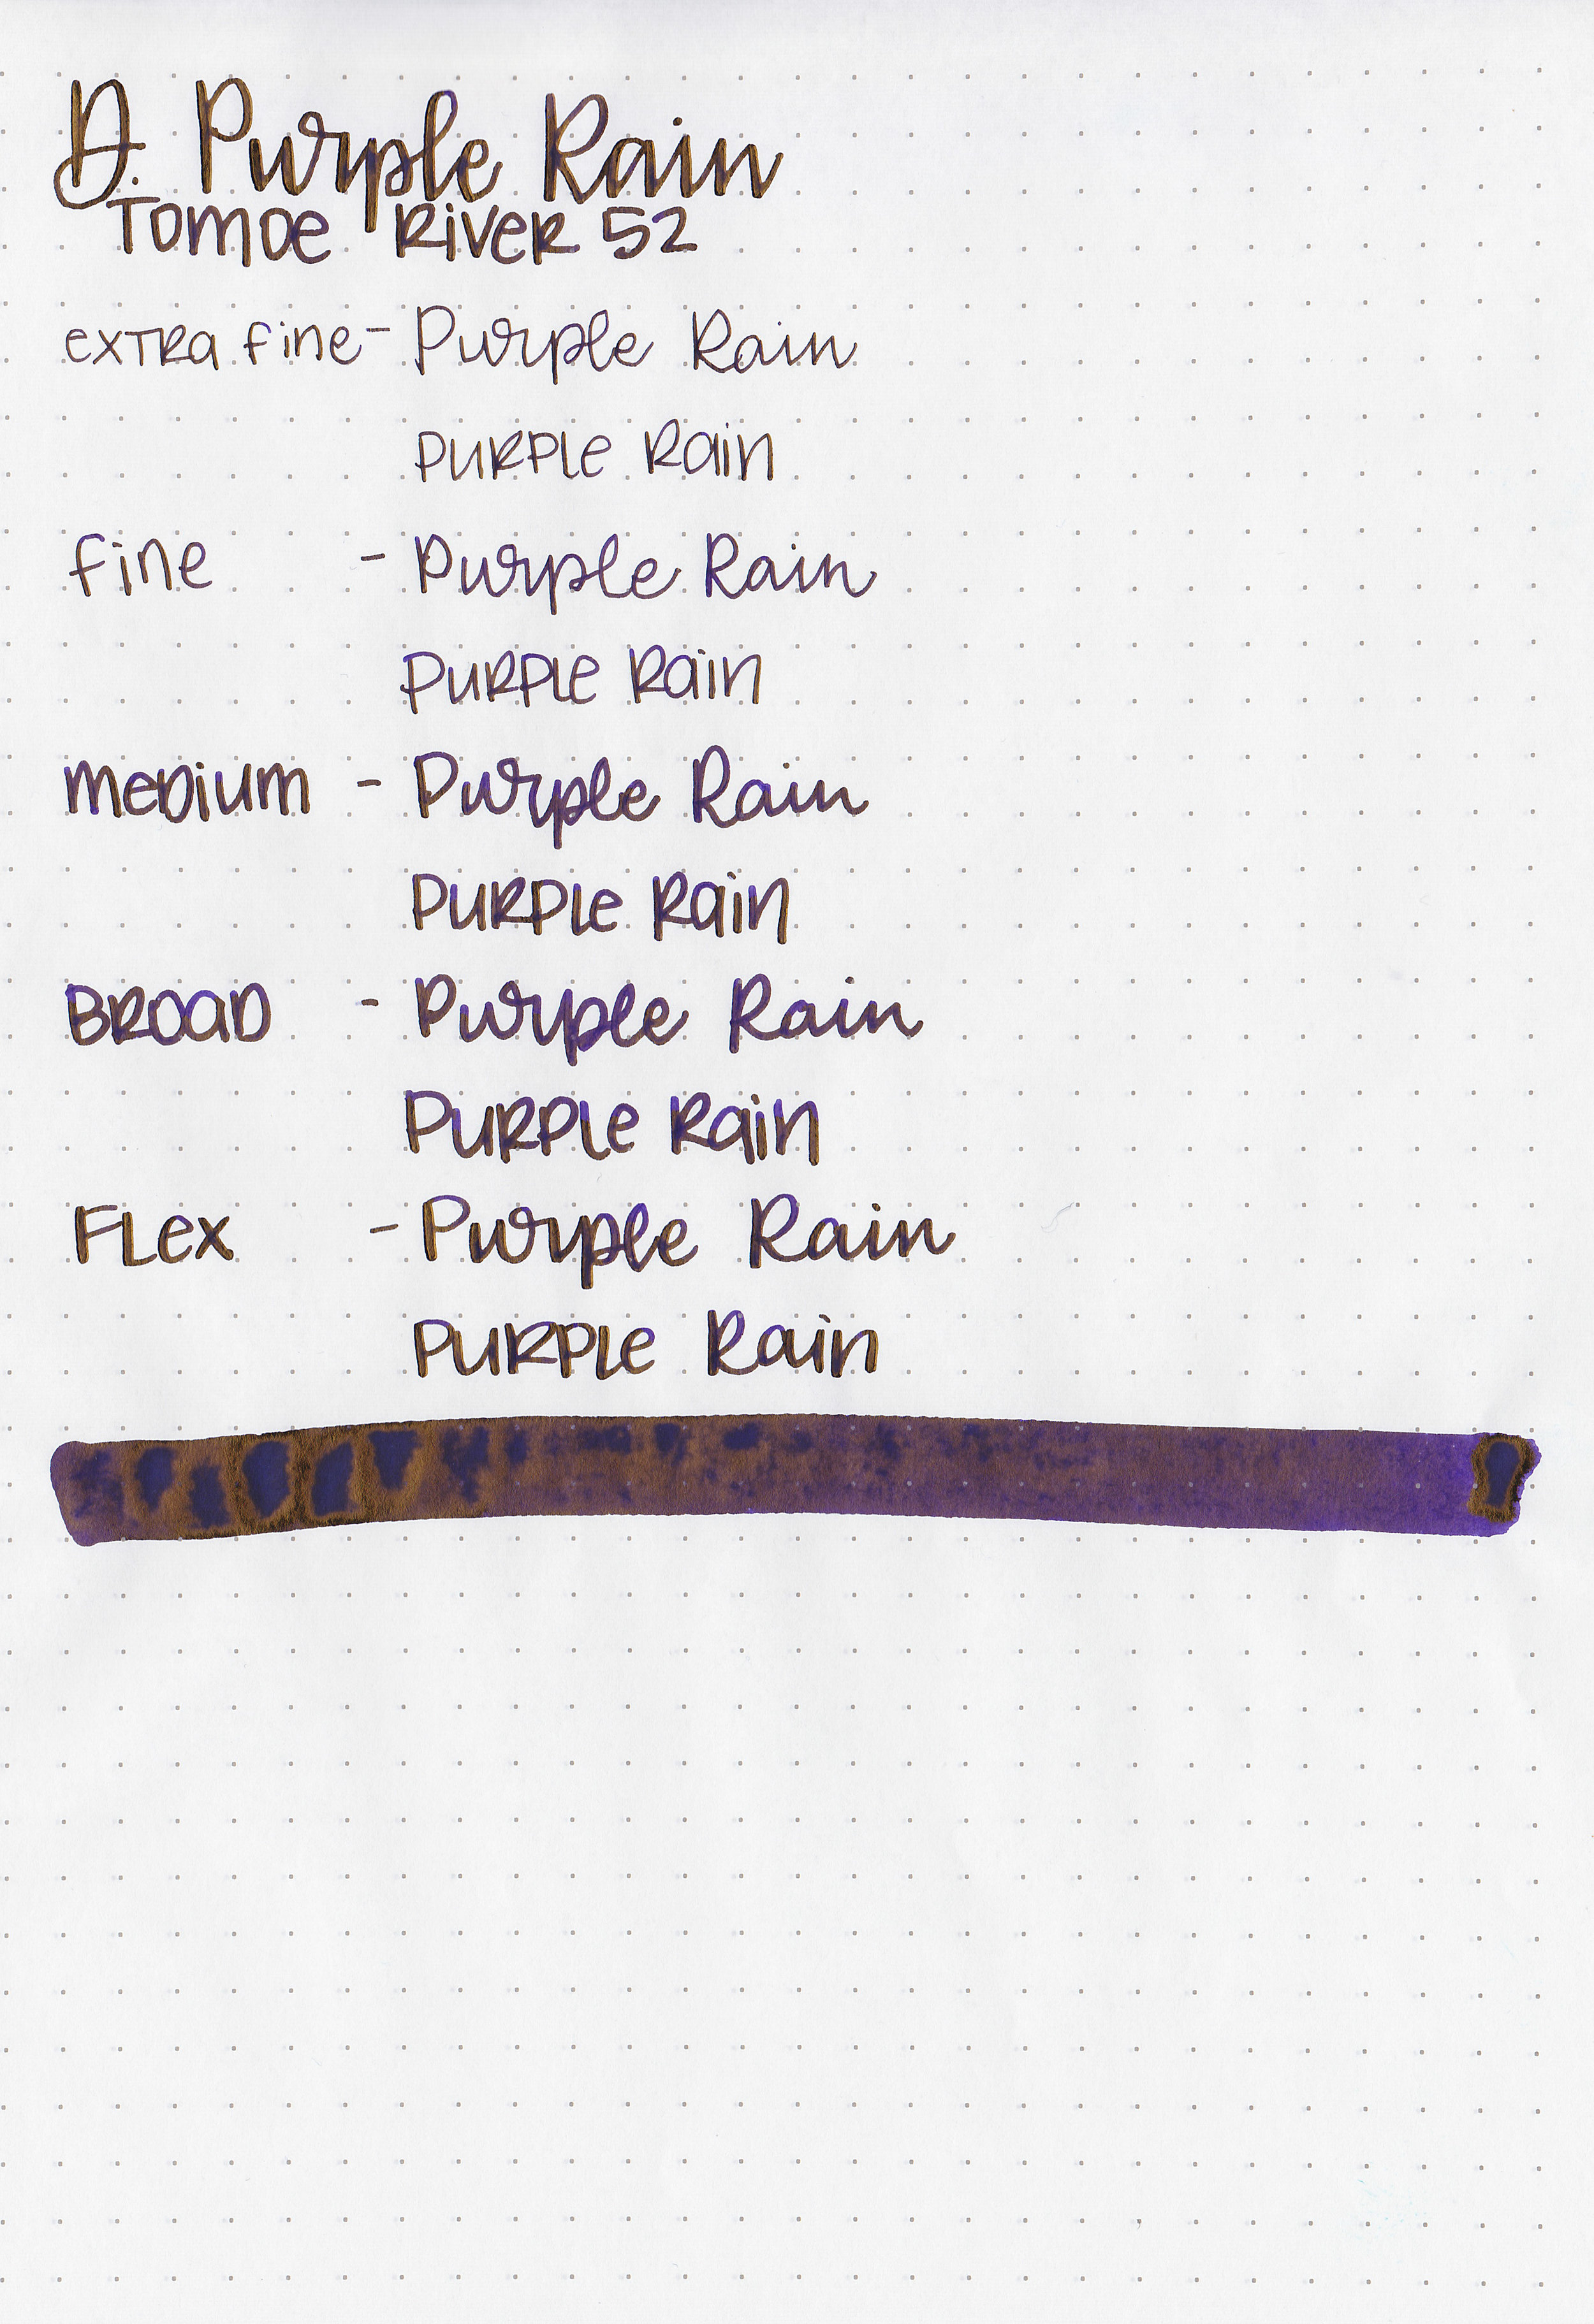 D. Purple Rain
Tomoe River 52
extra fine - Purple Rain
Purple Rain
fine - Purple Rain
Purple Rain
Medium - Purple Rain
Purple Rain
BROAD - Purple Rain
Purple Rain
FLex - Purple Rain
Purple Rain